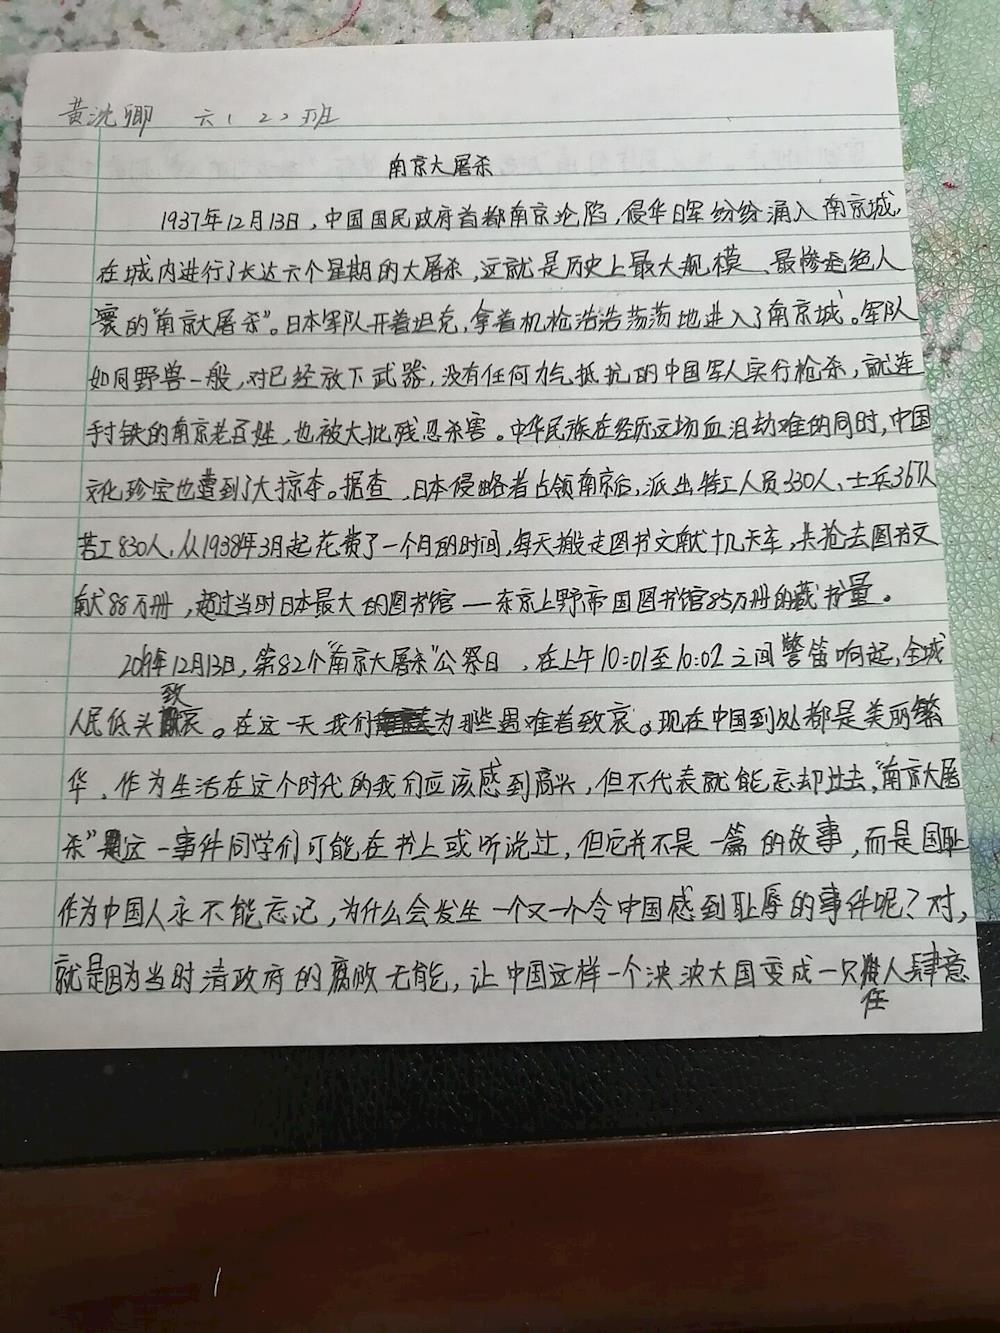 黄沈卿 六（2）班
南京大屠杀
1937年12月13日，中国国民政府首都南京沦陷，侵华日军纷纷涌入南京城，
在城内进行了长达六个星期的大屠杀，这就是历史上最大规模、最惨绝人
寰的“南京大屠杀”。日本军队开着坦克，拿着机枪浩浩荡荡地进入了南京城。军队
如同野兽一般，对已经放下武器，没有任何力气抵抗的中国军人实行枪杀，就连
手寸铁的南京老百姓，也被大批残忍杀害。中华民族在经历这场血泪劫难的同时，中国
文化珍宝也遭到了大掠夺。据查，日本侵略者占领南京后，派出特工人员330人、士兵367人
苦工830人，从1938年3月起花费了一个月的时间，每天搬走图书文献十几卡车，共抢去图书文
献88万册，超过当时日本最大的图书馆—东京上野帝国图书馆85万册的藏书量。
2019年12月13日，第82个“南京大屠杀”公祭日，在上午10:01至10:02之间警笛响起，全城
人民低头致哀。在这一天我们为那些遇难者致哀。现在中国到处都是美丽繁
华，作为生活在这个时代的我们应该感到高兴，但不代表就能忘却过去，“南京大屠
杀”这一事件同学们可能在书上或听说过，但它并不是一篇的故事，而是国耻
作为中国人永不能忘记，为什么会发生一个又一个令中国感到耻辱的事件呢？对，
就是因为当时清政府的腐败无能，让中国这样一个泱泱大国变成一只任人肆意